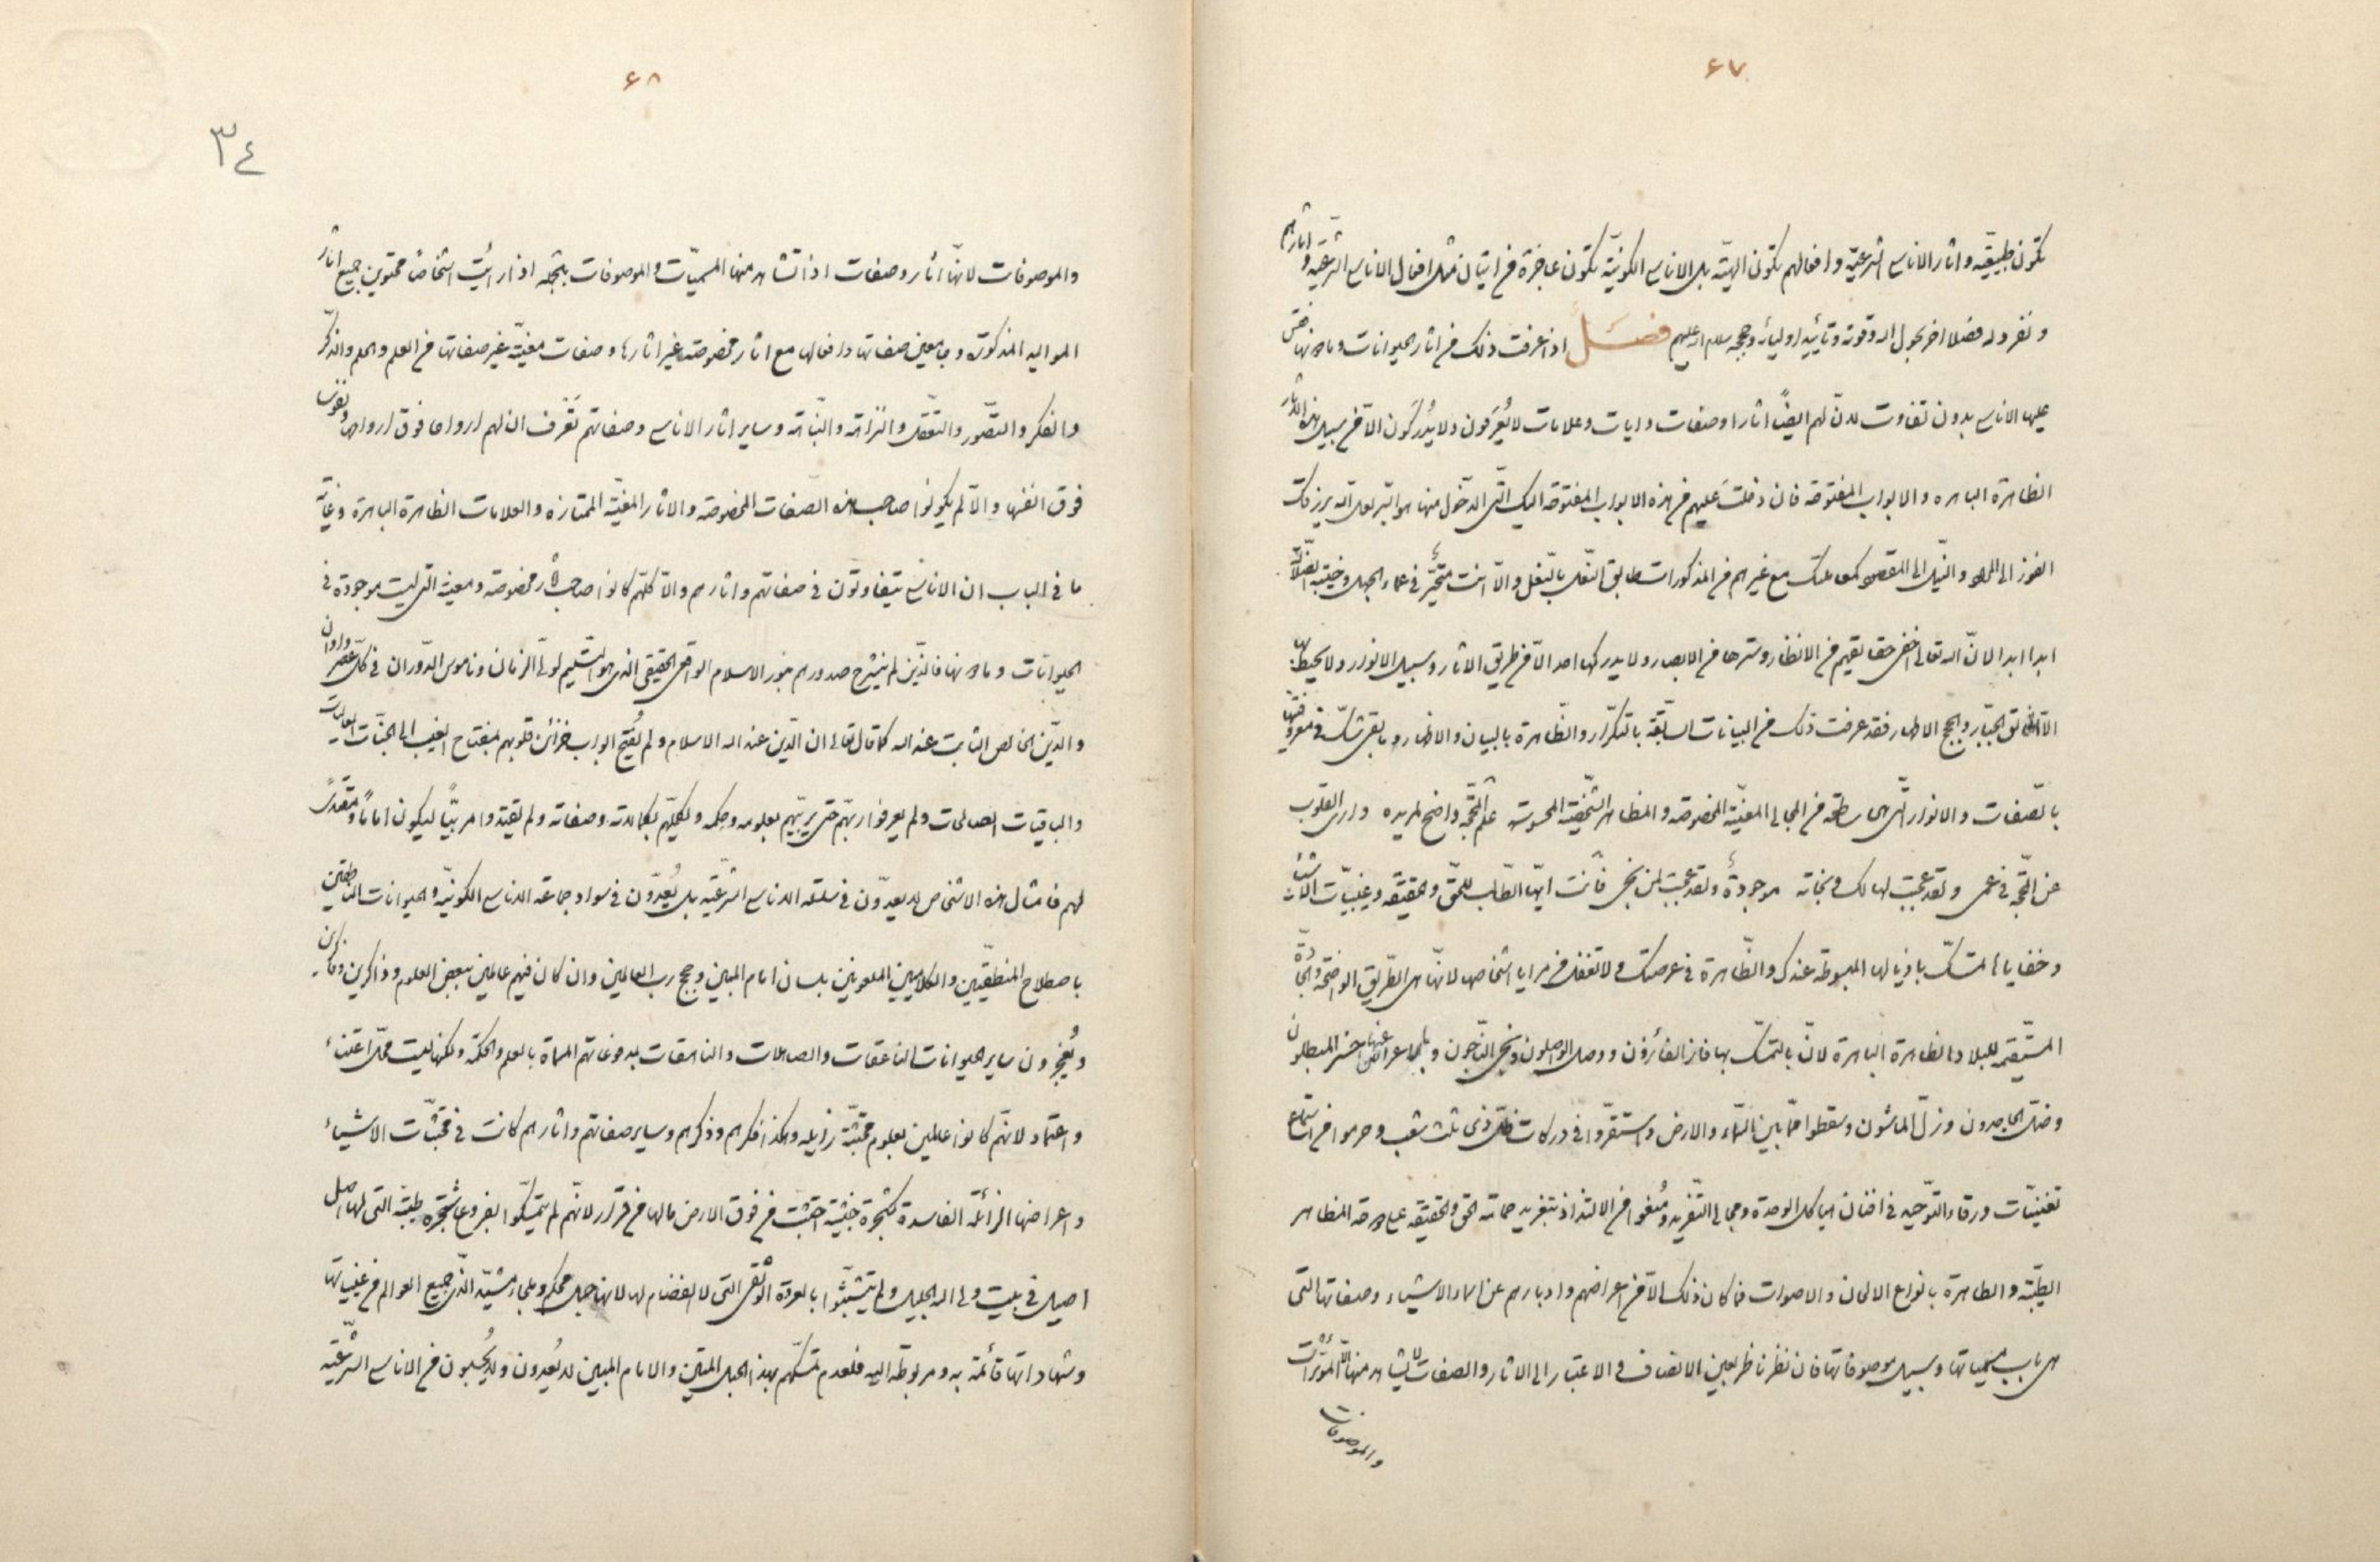 ۶۷
تكون طبيعيّة و اثار الاناسى الشرعيّة و افعالهم تكون الهيّة بل الاناسى الكونيّة تكون عاجزة فى اتيان مثل افعال الاناسى الشرعيّة و اثارهم
و نفرد له فصلا اخر بحول الله و قوته و تأييد اوليائه و حججه سلام الله عليهم فصل اذا عرفت ذلك فى اثار الحيوانات و ما
عليها الاناسى بدون تفاوت لانّ لهم ايضًا اثارا و صفات و ايات و علامات لا يُعرَفون و لا يُدرَكون الّا من سبيل هذه الاثار
الظاهرة الباهره و الابواب المفتوحة فان دخلتَ عليهم من هذه الابواب المفتوحة اليك التى الدخول منها هو البرّ لعل الله يرزقك
الفوز الى المراد و النيل الى المقصود كمعاملتك مع غيرهم من المذكورات طابق النعل بالنعل و الّا انت متحيّر فى عماء الجهل و خيبة الضّلالة
ابدا ابدا لانّ الله تعالى اخفى حقايقهم من الانظار و سترها من الابصار و لا يدركها احد الّا من طريق الاثار و سبيل الانوار و لا يحيط بها
الّا الخالق الجبّار و الحجج الاطهار فقد عرفت ذلك من البيانات السابقة بالتكرار و الظّاهرة بالبيان و الاظهار و ما بقى شكّ فى معروفيّتها
بالصفات و الانوار الّتى هى ساطعة من المجالى المعيّنة المخصوصة و المظاهر الشخصيّة المحسوسة علم المحجّة واضح لمريده و ارى القلوب
عن المحجّة فى عمى و لقد عجبت لهالك و نجاته موجودةٌ و لقد عجبت لمن نجى فأنت ايّها الطّالب للحقّ و الحقيقة و غيبيّات الاشياء
و خفاياها تمسّك باذيالها المبسوطة عندك و الظّاهرة فى عرصتك و لا تغفل من مرايا اشخاصها لانّها هى الطّريق الواضحة و الجادّة
المستقيمة للبلاد الظاهرة الباهرة لانّ بالتمسّك بها فاز الفائزون و وصل الواصلون و نجى النّاجون و بالاعراض عنها خسر المبطلون
و ضلّ الجاحدون و زلّ الماشون و سقطوا ممّا بين السّماء و الارض و استقرّوا فى دركات ظلّ ذى ثلث شعب و حرموا من استماع
تغنيّات ورقاء التوحيد فى افنان هياكل الوحدة و مجالى التّفريد و مُنعوا من الالتذاذ بتغريد حمامة الحقّ و الحقيقة على المظاهر
الطيّبة و الطاهرة بانواع الالحان و الاصوات فما كان ذلك الّا من اعراضهم و ادبارهم عن اثار الاشياء و صفاتها التى
هى باب مسمّياتها و سبيل موصوفاتها فان نظر ناظر بعين الانصاف و الاعتبار الى الاثار و الصفات لا يشاهد منها الّا المؤثّرات
و الموصوفات
۶۸
٣٤
و الموصوفات لانّها اثار و صفات اذا تشاهد منها المسميّات و الموصوفات بتّجه اذا رايت اشخاصًا محتوين جميع اثار
المواليد المذكورة و جامعين صفاتها و افعالها مع اثار مخصوصة غير اثارها و صفات معيّنة غير صفاتها من العلم و الحلم و الذّكر
و الفكر و التصوّر و التعقّل و النّزاهة و النّباهة و ساير اثار الاناسى و صفاتهم تعرف ان لهم ارواحا فوق ارواحها و نفوسا
فوق انفسها و الّا لم يكونوا صاحب هذه الصفات المخصوصة و الاثار المعيّنة الممتازة و العلامات الظاهرة الباهرة و غاية
ما فى الباب ان الاناسى يتفاوتون فى صفاتهم و اثارهم و الّا كلّهم كانوا صاحب اثار مخصوصة و معينة التى ليست موجودة فى
الحيوانات و ما فالّذين لم ينشرح صدورهم بنور الاسلام الواقعى الحقيقى الذى هو التسليم لولىّ الزمان و ناموس الدّوران فى كلّ عصر و اوان
و الدّين الخالص الثابت عند الله كما قال تعالى ان الدّين عند الله الاسلام و لم يُفتح ابواب خزائن قلوبهم بمفتاح الغيب الى الجنّات العاليات
و الباقيات الصالحات و لم يعرفوا ربّهم حتى يربّيهم بعلومه و حكمه و يكمّلهم بكمالاته و صفاته و لم يقتدوا مربّيًا ليكون امامًا و مقتدىً
لهم فامثال هذه الاشخاص لا يعدّون فى سلسلة الاناسى الشرعيّة بل يُعدّون فى سواد جماعة الاناسى الكونيّة و الحيوانات الناطقين
باصطلاح المنطقيّين و الكلاميين الملعونين بلسان امام المبين و حجج رب العالمين و ان كان فيهم عالمين ببعض العلوم و ذاكرين و فاكرين
و يُعجزون ساير الحيوانات الناعقات و الصاهلات و الناهقات بمصنوعاتهم المسماة بالعلم و الحكمة و لكنها ليست محلّ اعتناء
و اعتماد لانهم كانوا عالمين بعلوم مجتثّة زايلة و هكذا فكرهم و ذكرهم و ساير صفاتهم و اثارهم كانت فى مجتثّات الاشياء
و اعراضها الزائلة الفاسدة كشجرة خبيثة اجتثّت من فوق الارض ما لها من قرار لانّهم لم يتمسّكوا بفروع شجرة طيّبة التى لها اصل
اصيل فى بيت ولى الله الجليل و لم يتشبّثوا بالعروة الوثقى التى لا انفصام لها لانها حبل محكم و ملجاء مشيّد الذى جميع العوالم من غيبياتها
و شهاداتها قائمة به و مربوطة اليه فلعدم تمسّكهم بهذا الحبل المتين و الامام المبين لا يُعدون و لا يُحسبون من الاناسى الشرعيّة